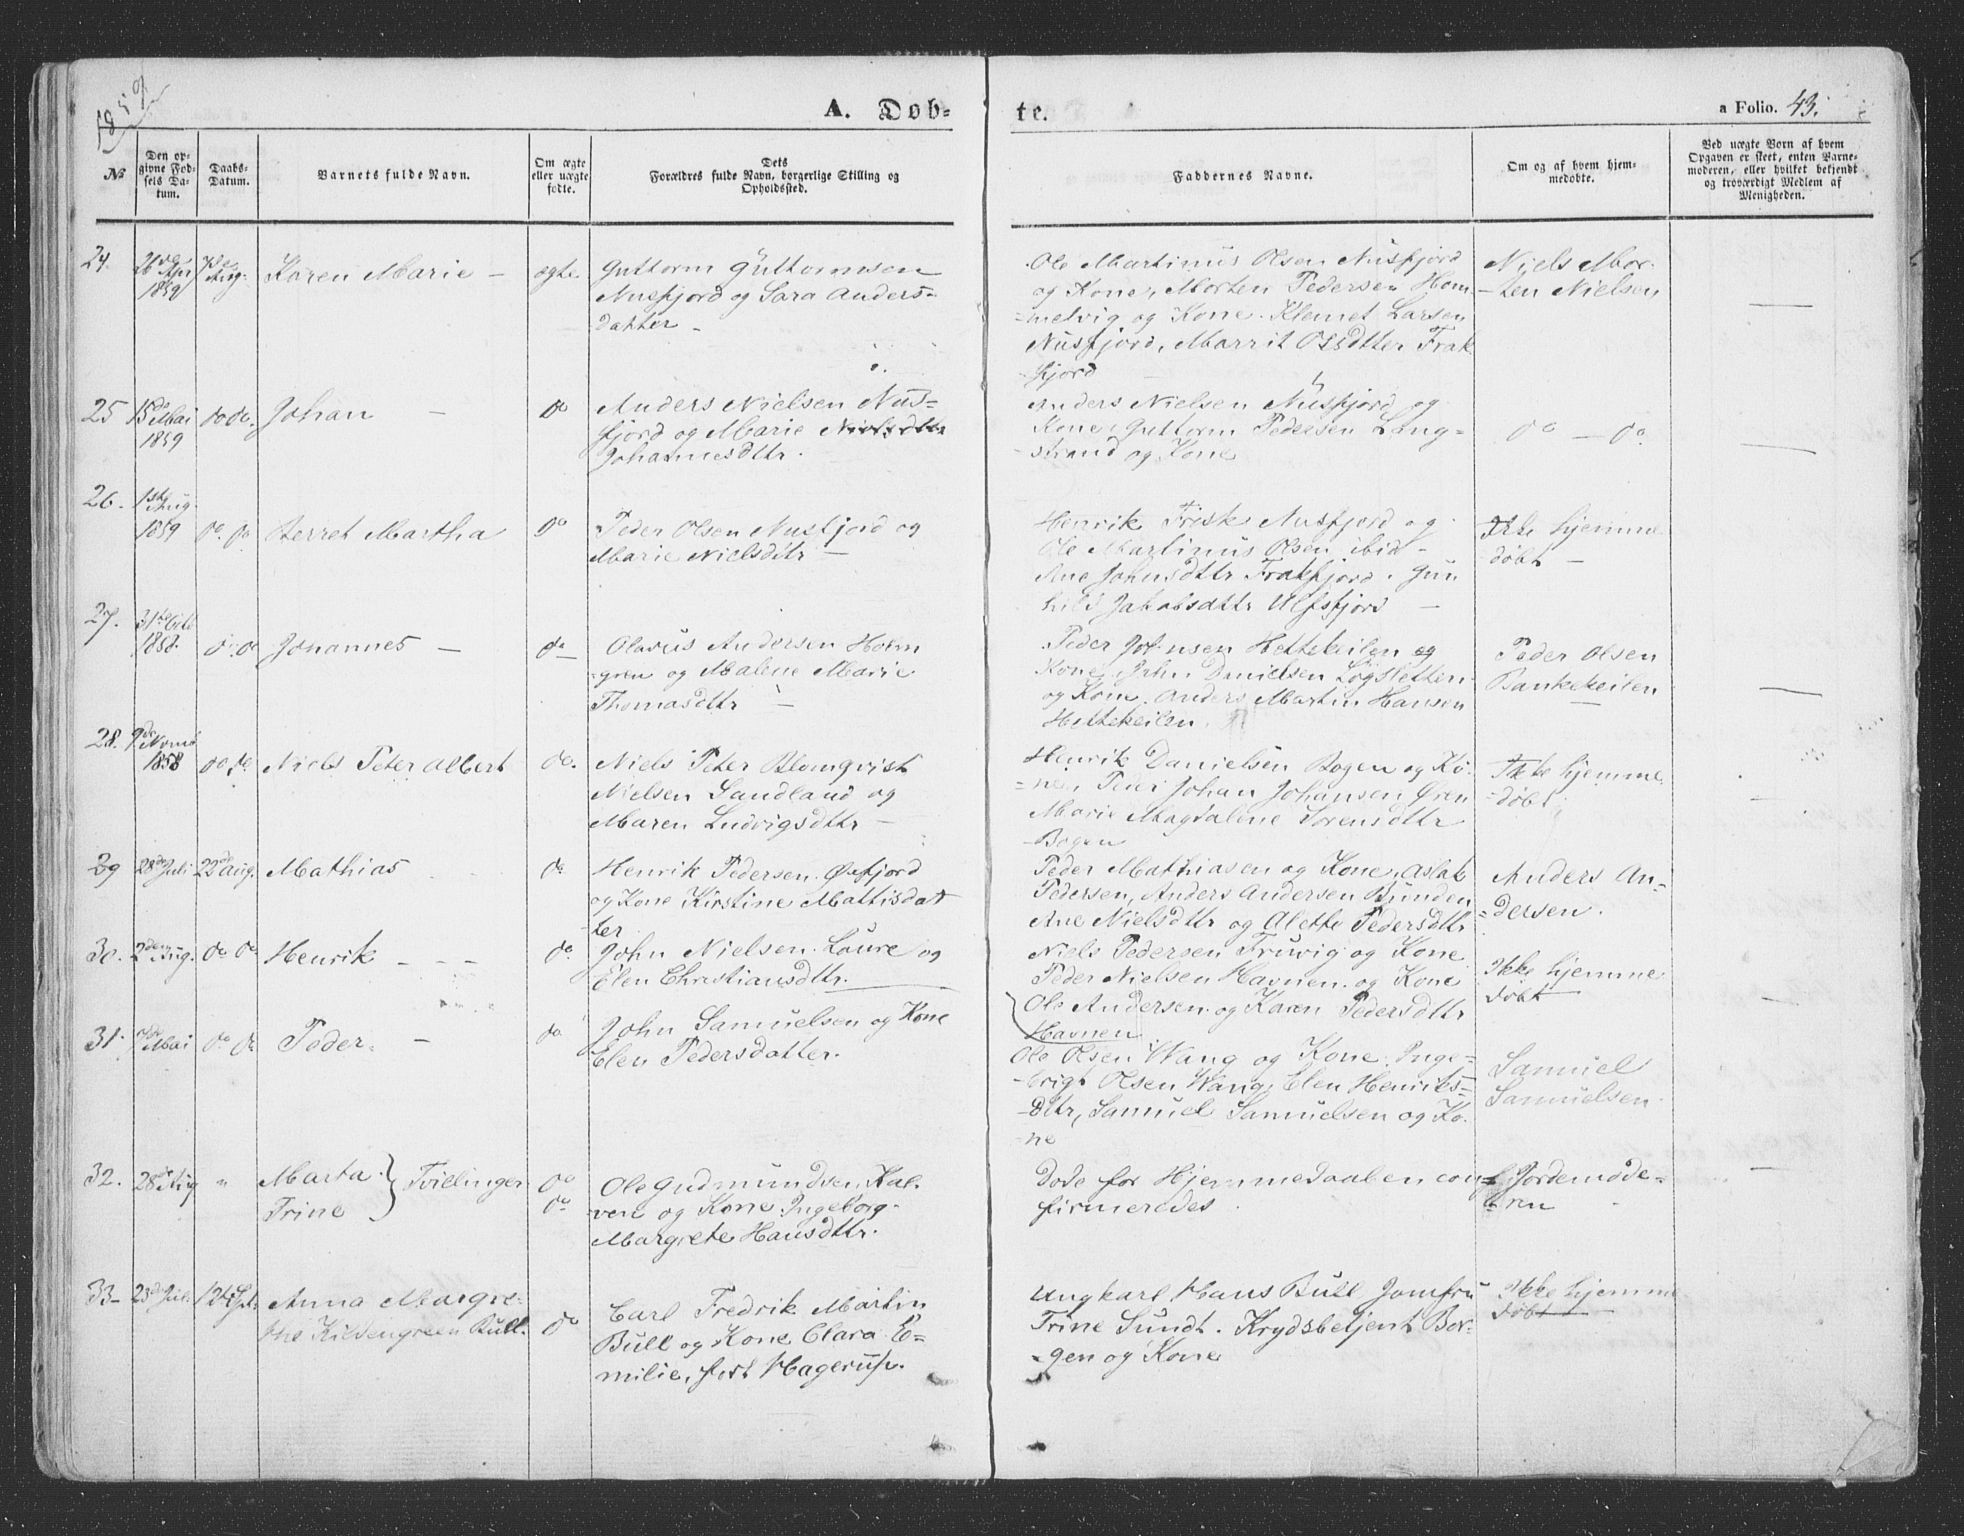 1859
A. Dob-
te.
a Folio. 43.
№
Den op-
givne Fød-
sels Da-
tum.
Daabs-
Datum.
Barnets fulde Navn.
Om ægte
eller uægte
fødte.
Dets
Forældres fulde Navn, borgerlige Stilling og
Opholdssted.
Faddernes Navne.
Om og af hvem hjem-
medøbte.
Ved uægte Børn af hvem
Opgaven er skeet, enten Barne-
moderen, eller hvilket bekjendt
og troværdigt Medlem af
Menigheden.
24.
26 Apr
1859
7de
Aug.
Karen Marie –
ægte.
Guttorm Guttormsen
Nusfjord og Sara Anders-
datter –
Ole Martinus Olsen Nusfjord
og Kone, Morten Pedersen Hom-
melvig og Kone. Klemet Larsen
Nusfjord, Marrit Olsdtter Frak
fjord
Niels Mor-
ten Nielsen
25
15de Mai
1859
do do.
Johan –
do
Anders Nielsen Nus-
fjord og Marie Nielsdttr
Johannesdttr.
Anders Nielsen Nusfjord og
Kone, Guttorm Pedersen Lang-
strand og Kone
do – do.
26.
1ste Aug.
1859
do. do
Berret Martha
do
Peder Olsen Nusfjord og
Marie Nielsdttr –
Henrik Frisk Nusfjord og
Ole Martinus Olsen ibid –
Ane Johnsdttr Frakfjord. Gun
hild Jakobsdttr Ulfsfjord –
Ikke hjemme
døbt –
27.
31te
1858.
do. do
Johannes –
do
Olavus Andersen Holm
gren og Malene Marie
Thomasdttr –
Peder Johnsen Hettekeilen og
Kone, John Danielsen Løgsletten
og Kone. Anders Martin Hansen
Hettekeilen.
Peder Olsen
Bankekeilen
28.
9de Novmb
1858
do do.
Niels Peter Albert
do.
Niels Peter Blomqvist
Nielsen Sandland og
Maren Ludvigsdttr –
Henrik Danielsen Bogen og Ko-
ne, Peder Johan Johansen Øren
Marie Magdalene Sørensdttr
Bogen
Ikke hjemme
døbt
29
28de Juli
22de Aug.
Mathias
do
Henrik Pedersen
og Kone Kirstine Mattisdat
ter
Peder Mathiasen og Kone, Aslak
Pedersen, Anders Andersen Bunden
Ane Nielsdttr og Alette Pedersdttr
Anders An-
dersen.
30.
2den Aug.
do do
Henrik – – –
do.
John Nielsen Laure og
Elen Christiansdttr.
Niels Pedersen Fruvig og Kone
Peder Nielsen Havnen og Kone
Ole Andersen og Karen Pedersdttr
Havnen
Ikke hjemme
døbt
31.
Mai
do do
Peder –
do
John Samuelsen og Kone
Elen Pedersdatter.
Ole Olsen Wang og Kone. Inge-
brigt Olsen Wang, Elen Henriks-
dttr, Samuel Samuelsen og Ko-
ne
Samuel
Samuelsen.
32.
28de Aug
"
Marta
Trine
Tvillinger
do
do
Ole Gudmundsen Kal-
ven og Kone Ingeborg
Margrete Hansdttr.
Døde før Hjemmedaaben con-
firmeredes.
af Jordemode-
ren
33–
23de Juli
12te Spt.
Anna Margre-
the Kildengreen Bull.
do
Carl Fredrik Martin
Bull og Kone Clara E-
milie, født Hagerup.
Ungkarl Hans Bull Jomfru
Trine Sundt. Krydsbetjent Bor-
gen og Kone
Ikke hjemme
døbt